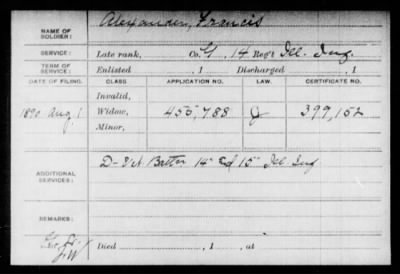 Alexander, Francis
NAME OF SOLDIER:
SERVICE: Late rank, Co. G, 14 Reg't Ill. Inf.
TERM OF SERVICE: Enlisted , 1 Discharged , 1
DATE OF FILING. CLASS. APPLICATION NO. LAW. CERTIFICATE NO.
Invalid,
1890 Aug 1 Widow, 455,788 399,152
Minor,
ADDITIONAL SERVICES: D- Batt'n 14" & 15" Ill Inf
REMARKS:
Died , 1 , at